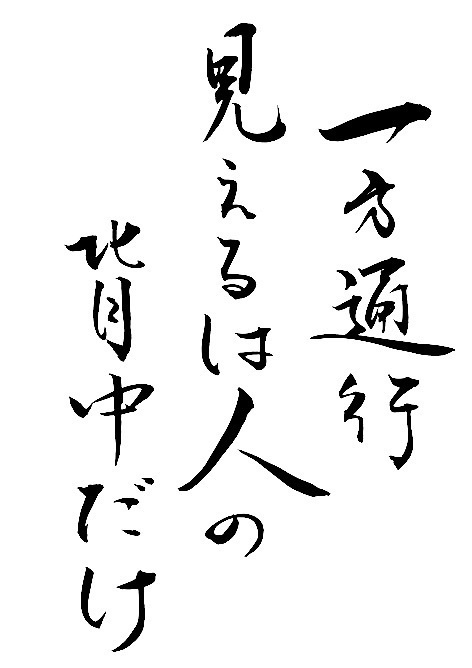 一方通行
見えるは人の
背中だけ